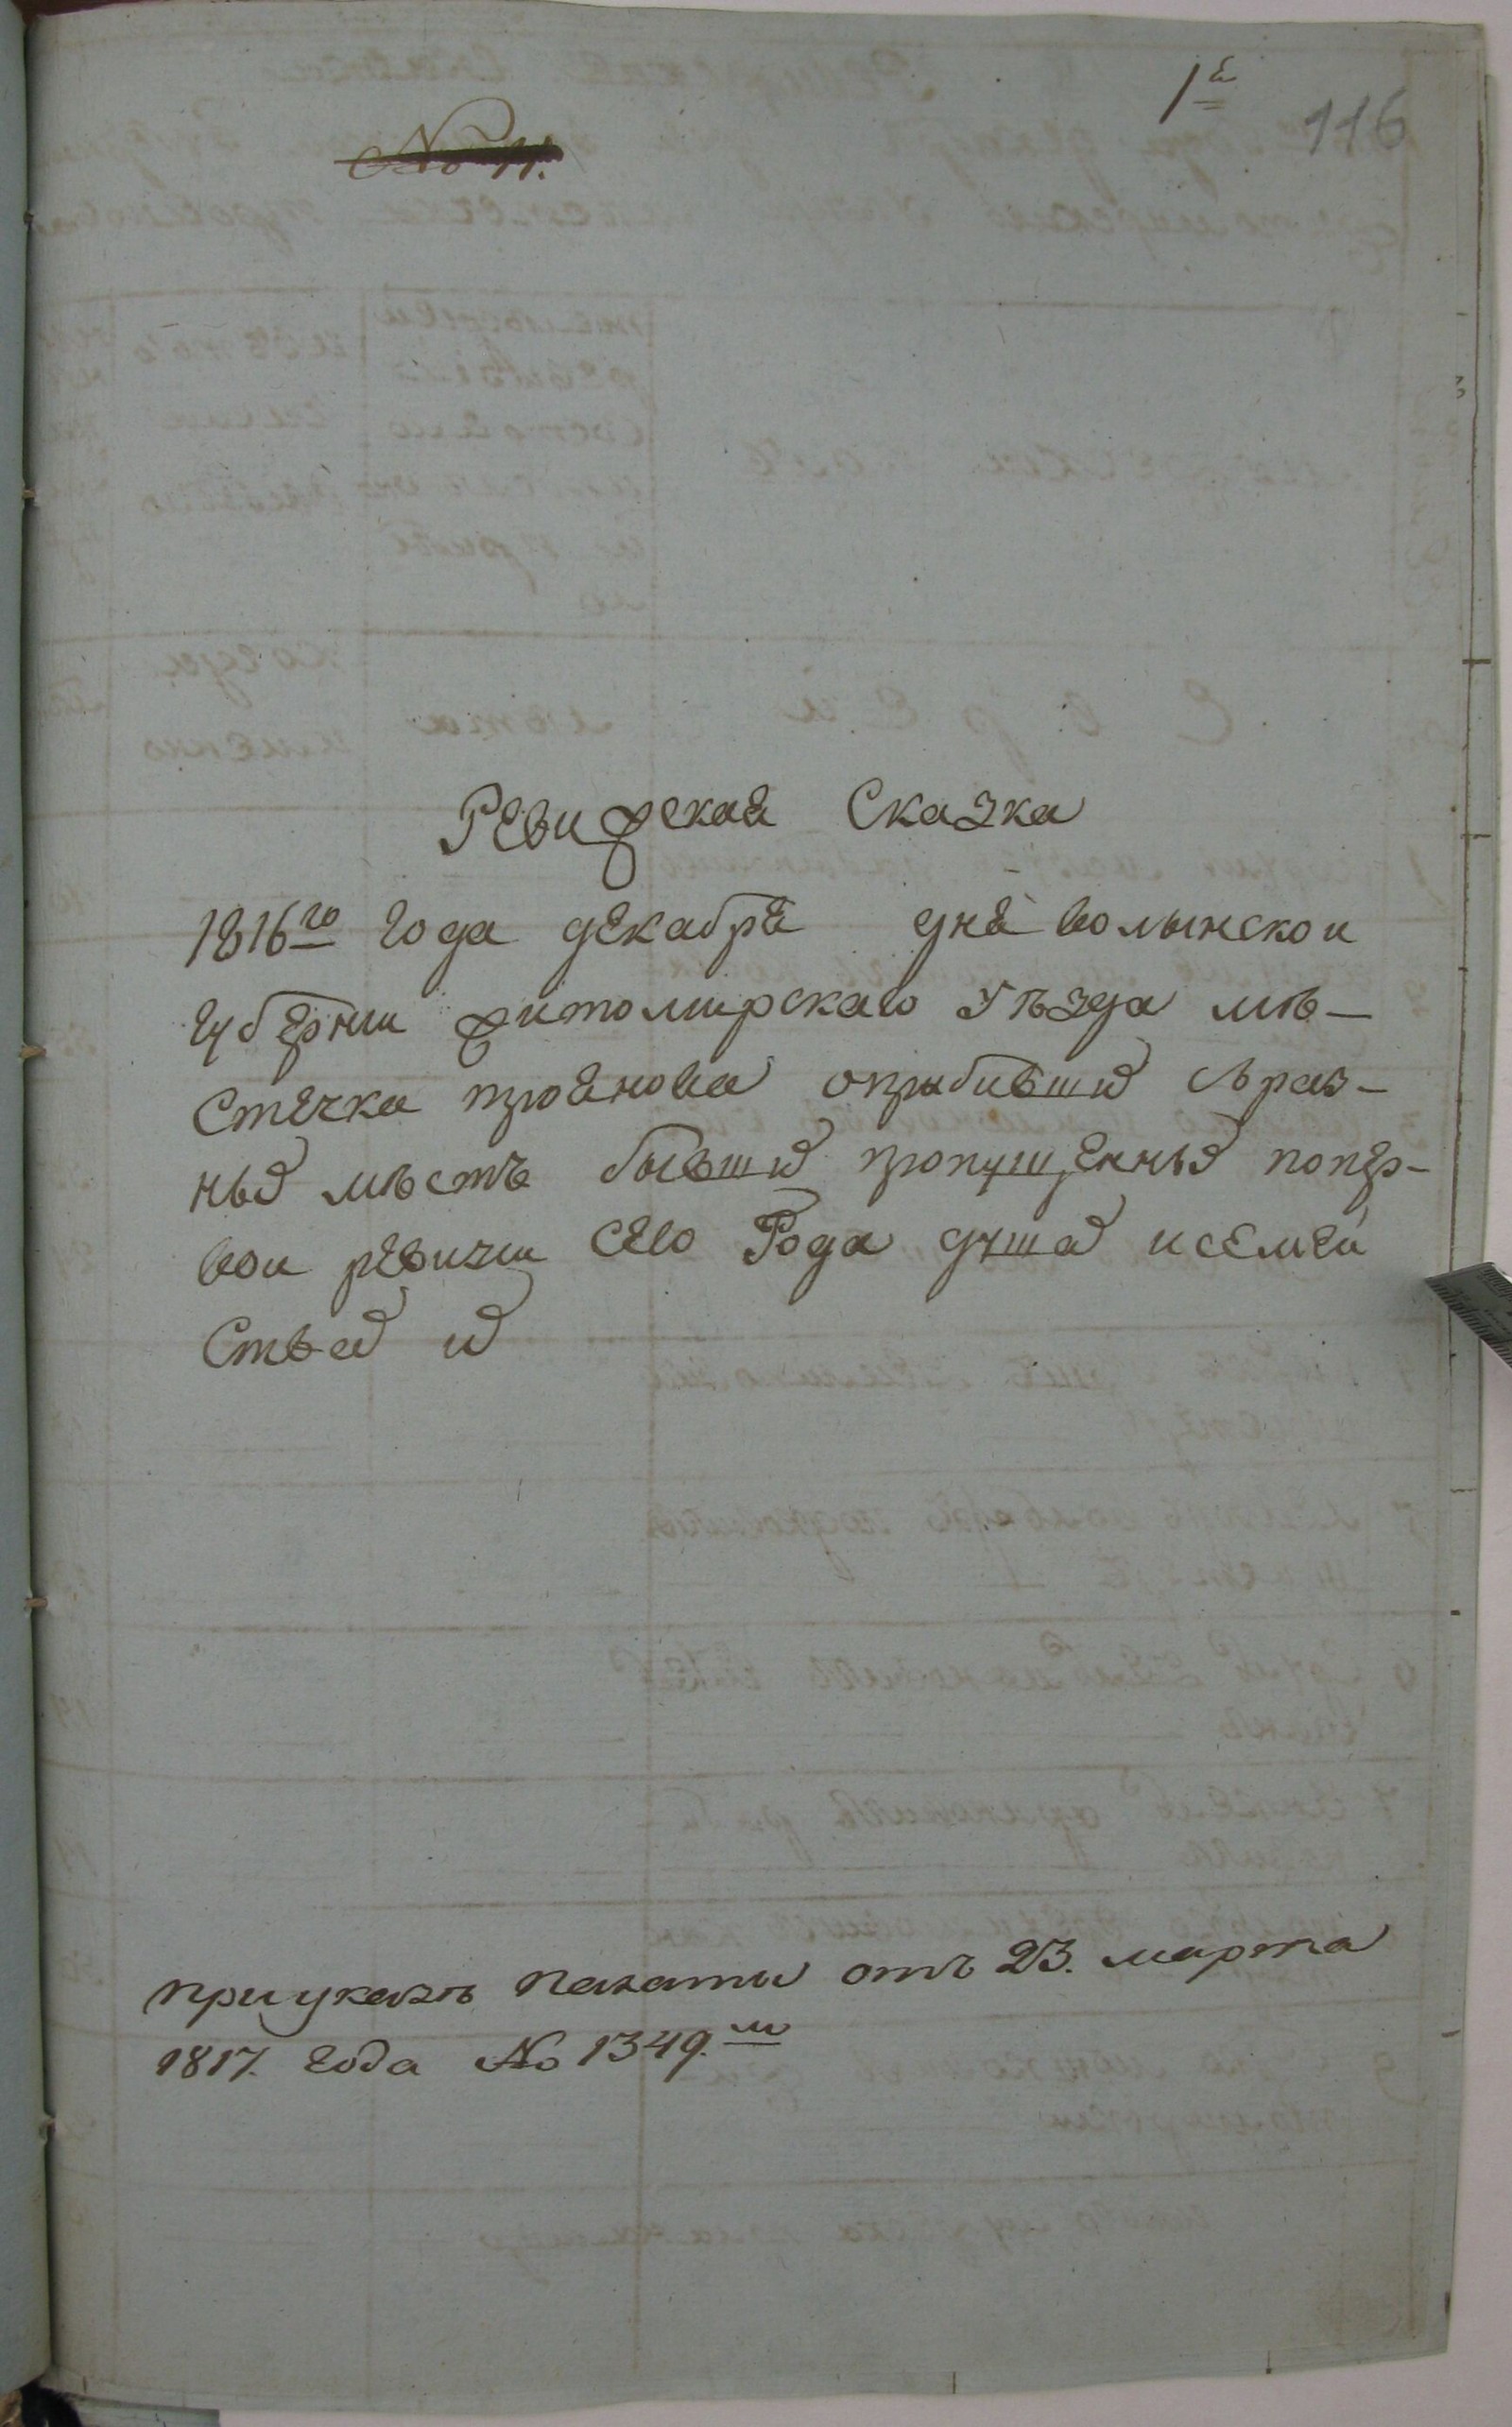 1е
116
№ 11.
Ревижская Сказка
1816го Года декабря дня волынской
губернии житомирскаго уѣзда мѣ-
стечка трояновa о прибившихъ съ раз-
ныхъ мѣстъ бывшихъ пропущенныхъ по пер-
вои ревизии сего Года душахъ и семей
ствахъ ихъ
при указѣ палаты отъ 23. марта
1817. года № 1349.м